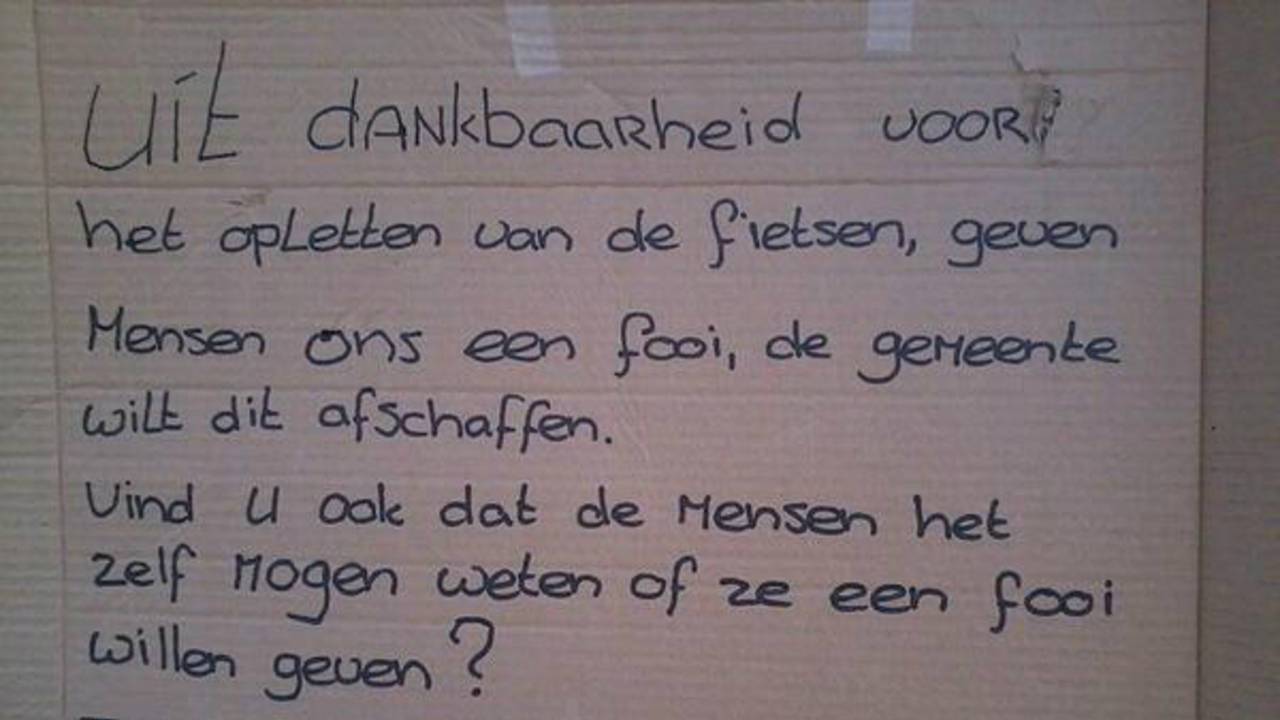 Uit dankbaarheid voor
het opletten van de fietsen, geven
Mensen ons een fooi, de gemeente
wilt dit afschaffen.
Vind u ook dat de Mensen het
zelf Mogen weten of ze een fooi
willen geven?